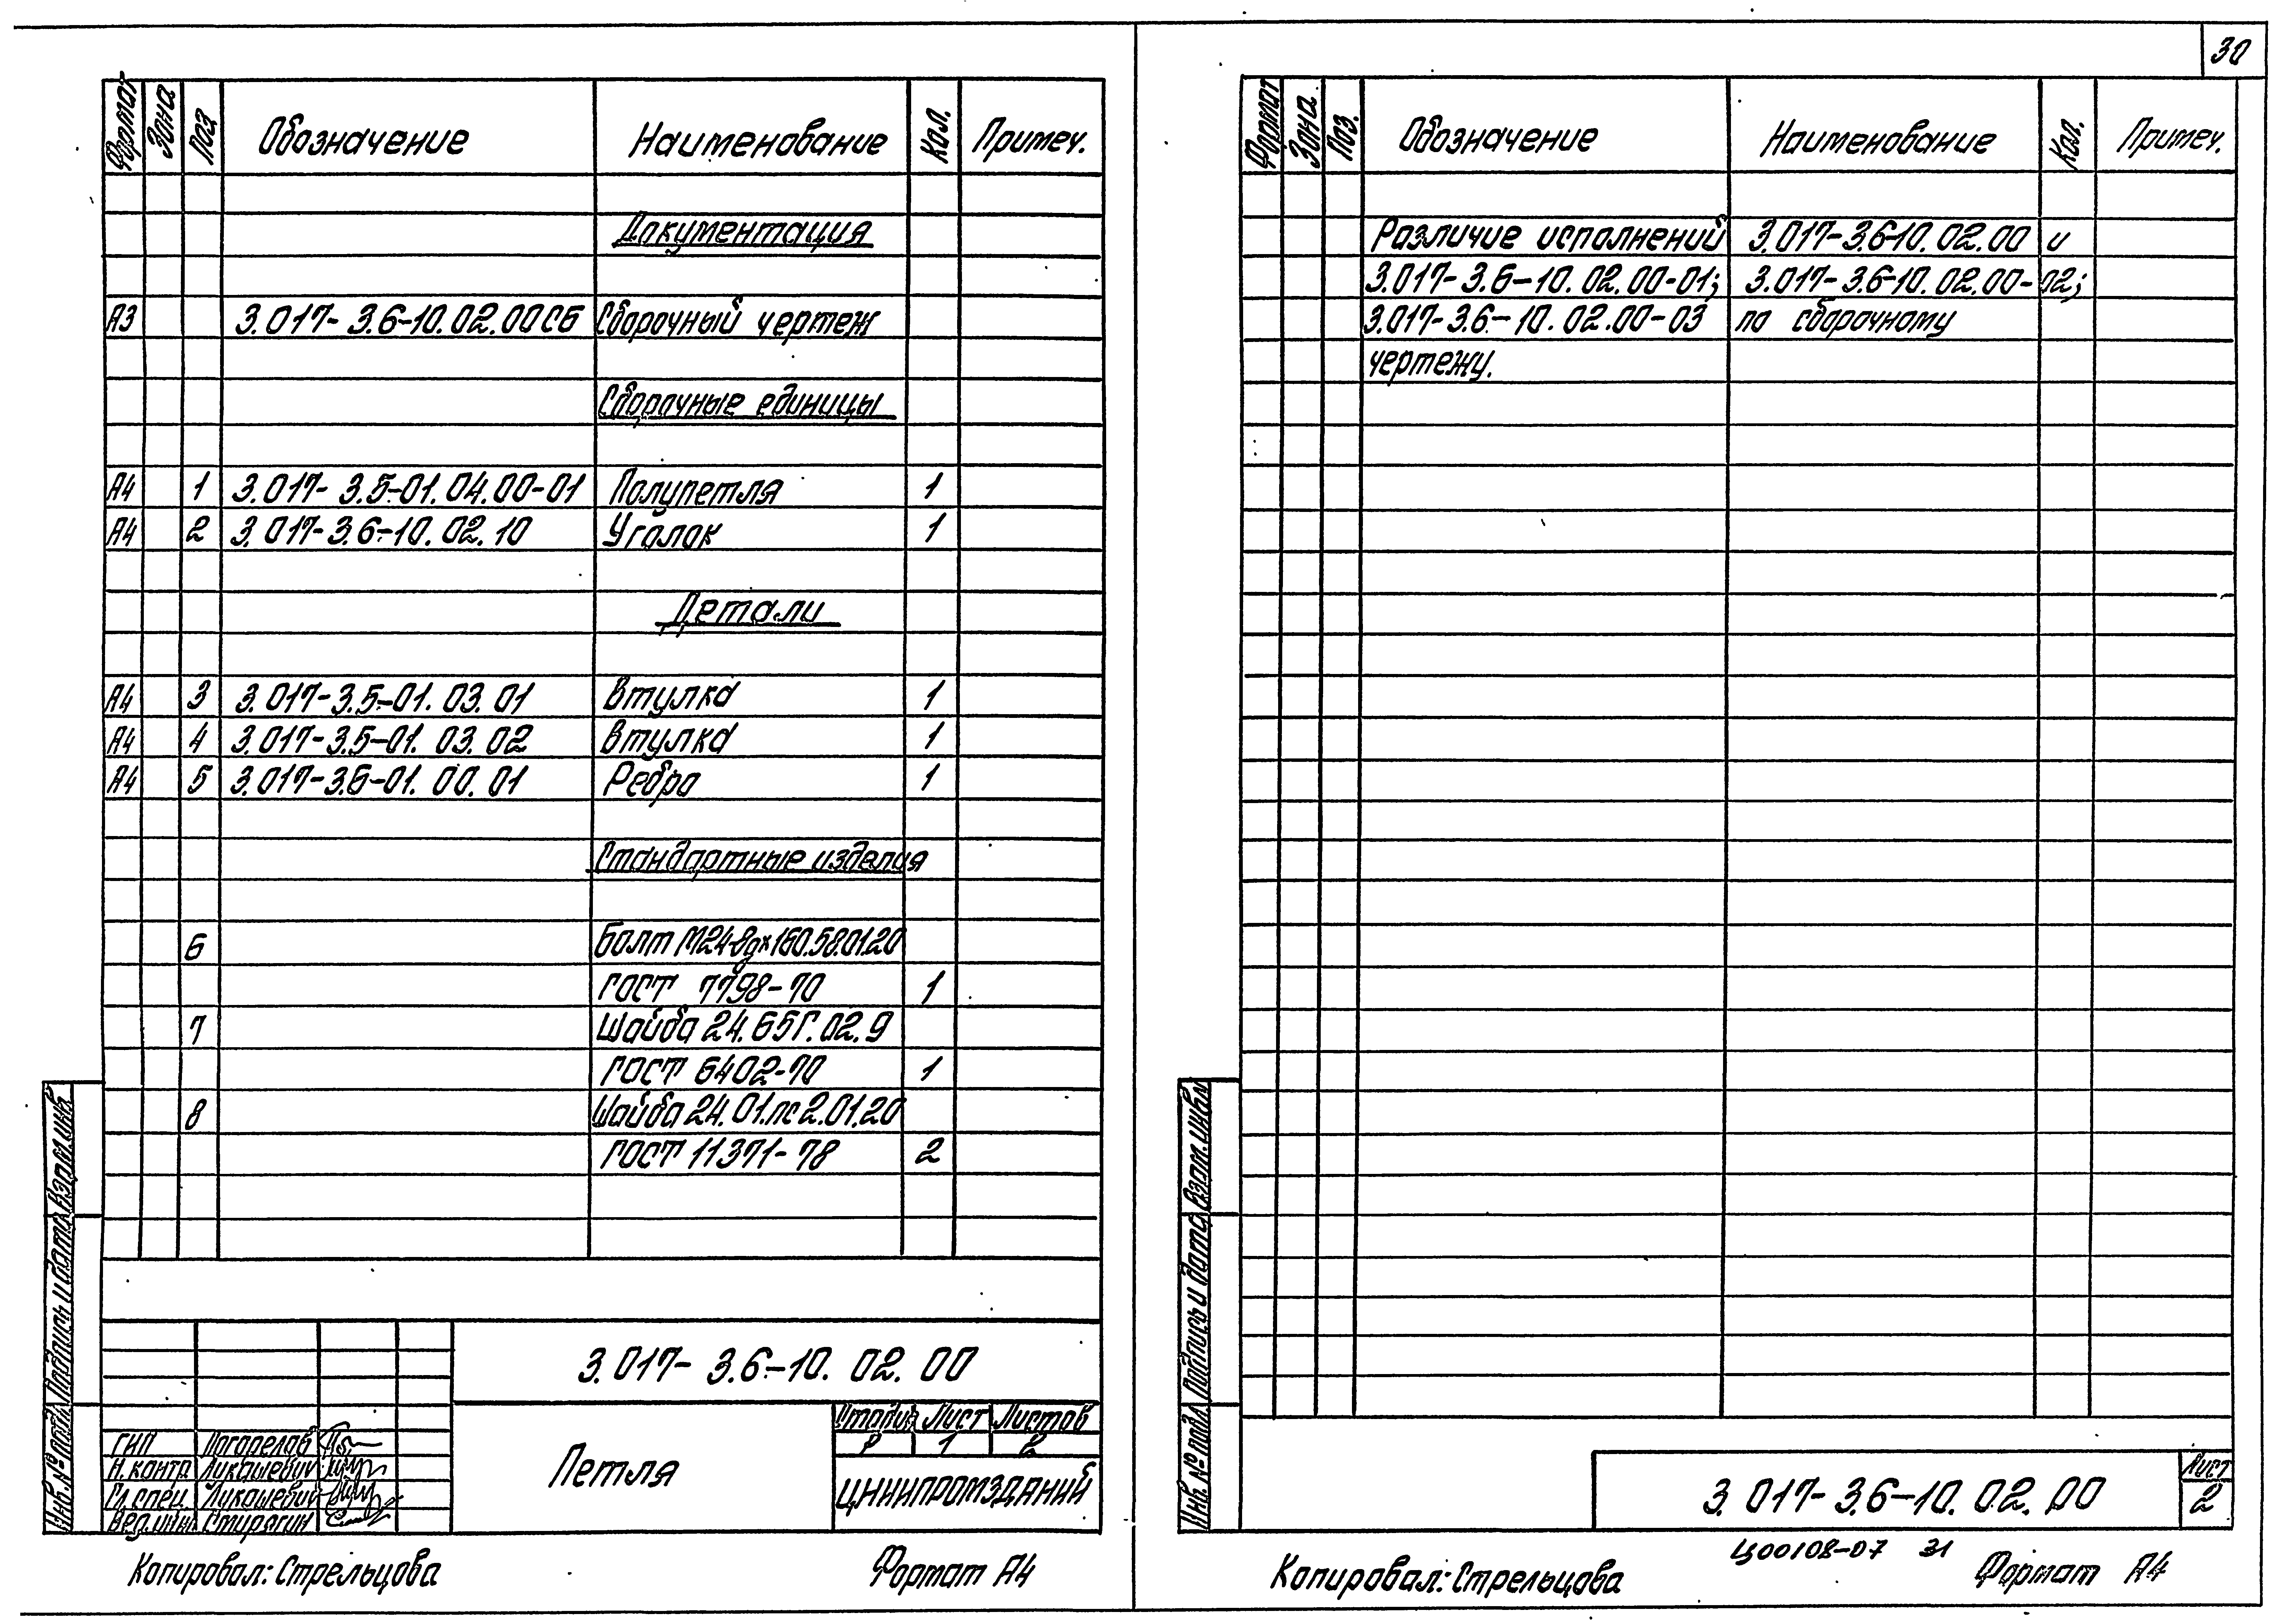 30
Формат Зона Поз Обозначение Наименование Кол. Примеч.
Документация
А3 3.017-3.6-10.02.00СБ Сборочный чертеж
Сборочные единицы
А4 1 3.017-3.5-01.04.00-01 Полупетля 1
А4 2 3.017-3.6-10.02.10 Уголок 1
Детали
А4 3 3.017-3.5-01.03.01 Втулка 1
А4 4 3.017-3.5-01.03.02 Втулка 1
А4 5 3.017-3.6-01.00.01 Ребро 1
Стандартные изделия
6 Болт М24-8gx160.58.01.20
ГОСТ 7798-70 1
7 Шайба 24.65Г.02.9
ГОСТ 6402-70 1
8 Шайба 24.01.лс2.01.20
ГОСТ 11371-78 2
Взам.инв.
Подпись и дата
Инв.№подл.
3.017-3.6-10.02.00
Петля
Стадия Лист Листов
Р 1 2
ЦНИИПРОМЗДАНИЙ
ГИП Погорелов
Н.контр Лукашевич
Гл.спец. Лукашевич
Вед.инж Стирягин
Копировал: Стрельцова Формат А4
Формат Зона Поз. Обозначение Наименование Кол. Примеч.
Различие исполнений 3.017-3.6-10.02.00 и
3.017-3.6-10.02.00-01; 3.017-3.6-10.02.00-02;
3.017-3.6-10.02.00-03 по сборочному
чертежу.
Взам.инв.
Подпись и дата
Инв.№подл.
3.017-3.6-10.02.00
Лист
2
Ц00108-07 31
Копировал: Стрельцова Формат А4